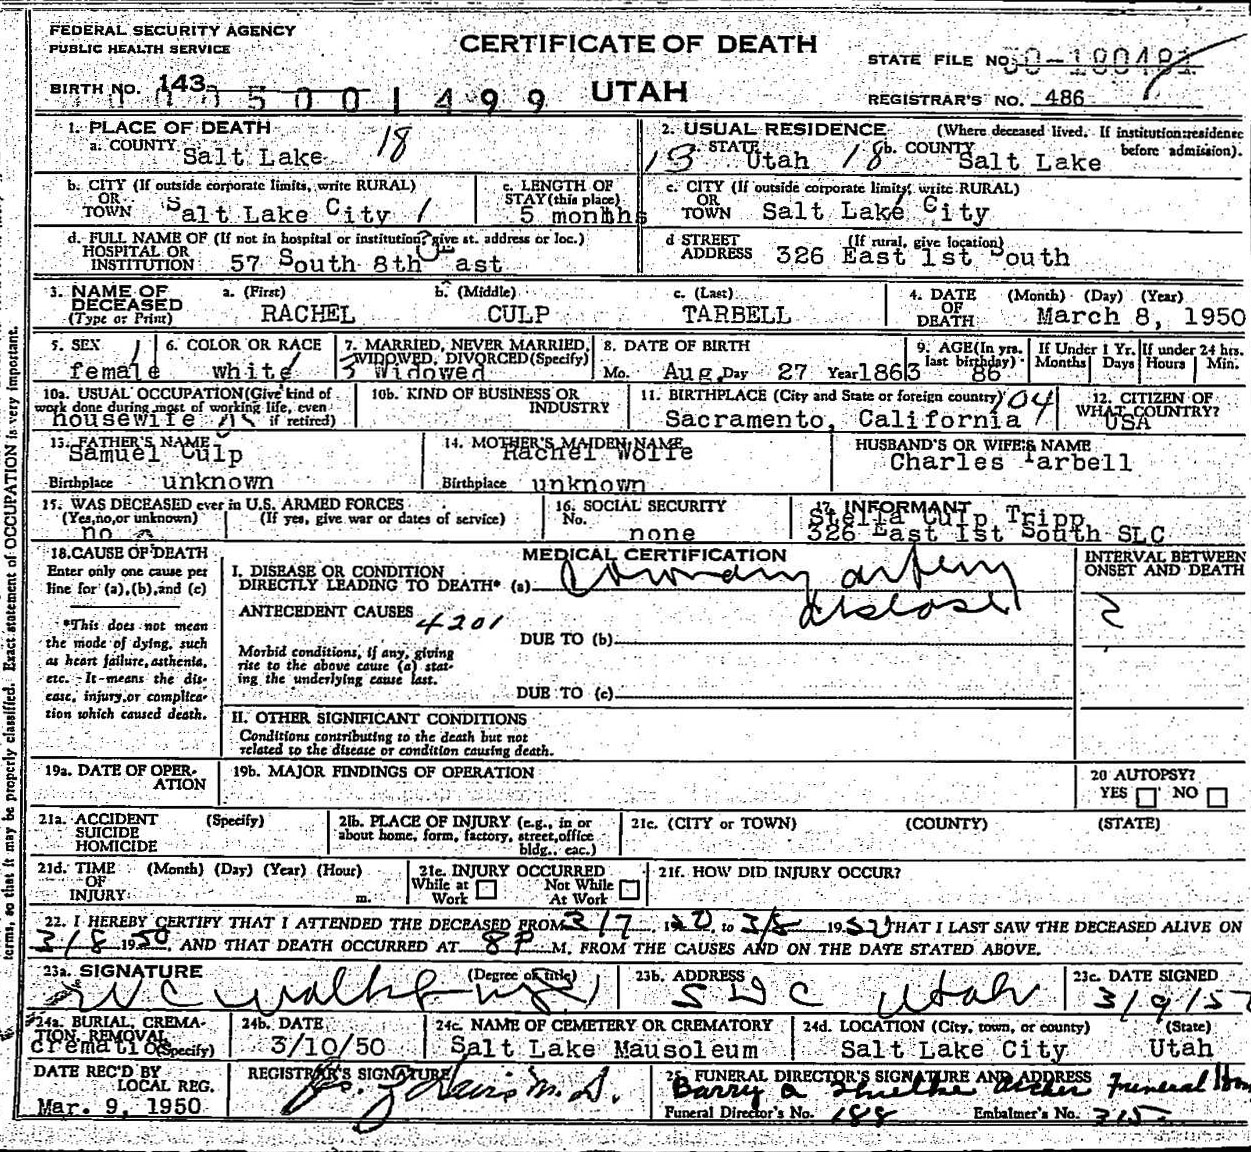 FEDERAL SECURITY AGENCY
PUBLIC HEALTH SERVICE
CERTIFICATE OF DEATH
UTAH
STATE FILE NO. 50-180481
BIRTH NO. 143
5001499
REGISTRAR'S NO. 486
1. PLACE OF DEATH
a. COUNTY Salt Lake 18
2. USUAL RESIDENCE (Where deceased lived. If institution: residence before admission).
13 a. STATE Utah 18 b. COUNTY Salt Lake
b. CITY (If outside corporate limits, write RURAL)
OR
TOWN Salt Lake City 1
c. LENGTH OF
STAY (this place)
5 monhhs
c. CITY (If outside corporate limits, write RURAL)
OR
TOWN Salt Lake City
d. FULL NAME OF (If not in hospital or institution, give st. address or loc.)
HOSPITAL OR
INSTITUTION 57 South 8th East
d STREET (If rural, give location)
ADDRESS 326 East 1st South
3. NAME OF DECEASED
(Type or Print)
a. (First) RACHEL
b. (Middle) CULP
c. (Last) TARBELL
4. DATE OF DEATH (Month) (Day) (Year)
March 8, 1950
5. SEX 1
female
6. COLOR OR RACE
white 1
7. MARRIED, NEVER MARRIED,
WIDOWED, DIVORCED (Specify)
3 Widowed
8. DATE OF BIRTH
Mo. Aug. Day 27 Year 1863
9. AGE (In yrs. last birthday)
86
If Under 1 Yr.
Months Days
If under 24 hrs.
Hours Min.
10a. USUAL OCCUPATION (Give kind of
work done during most of working life, even
if retired)
housewife
10b. KIND OF BUSINESS OR
INDUSTRY
11. BIRTHPLACE (City and State or foreign country) 104
Sacramento, California
12. CITIZEN OF
WHAT COUNTRY?
USA
13. FATHER'S NAME
Samuel Culp
Birthplace unknown
14. MOTHER'S MAIDEN NAME
Rachel Wolfe
Birthplace unknown
HUSBAND'S OR WIFE'S NAME
Charles Tarbell
15. WAS DECEASED ever in U.S. ARMED FORCES
(Yes, no, or unknown) (If yes, give war or dates of service)
no
16. SOCIAL SECURITY
No.
none
17. INFORMANT
Stella Culp Tripp
326 East 1st South SLC
18. CAUSE OF DEATH
Enter only one cause per
line for (a), (b), and (c)
*This does not mean
the mode of dying, such
as heart failure, asthenia,
etc. It means the dis-
ease, injury, or complica-
tion which caused death.
MEDICAL CERTIFICATION
I. DISEASE OR CONDITION
DIRECTLY LEADING TO DEATH* (a) Coronary artery
disease
ANTECEDENT CAUSES 4201
DUE TO (b)
Morbid conditions, if any, giving
rise to the above cause (a) stat-
ing the underlying cause last.
DUE TO (c)
II. OTHER SIGNIFICANT CONDITIONS
Conditions contributing to the death but not
related to the disease or condition causing death.
INTERVAL BETWEEN
ONSET AND DEATH
?
19a. DATE OF OPER-
ATION
19b. MAJOR FINDINGS OF OPERATION
20 AUTOPSY?
YES NO
21a. ACCIDENT (Specify)
SUICIDE
HOMICIDE
21b. PLACE OF INJURY (e.g., in or
about home, form, factory, street, office
bldg., eac.)
21c. (CITY or TOWN) (COUNTY) (STATE)
21d. TIME (Month) (Day) (Year) (Hour)
OF
INJURY m.
21e. INJURY OCCURRED
While at Work Not While At Work
21f. HOW DID INJURY OCCUR?
22. I HEREBY CERTIFY THAT I ATTENDED THE DECEASED FROM 3/7, 1950, to 3/8 1950 THAT I LAST SAW THE DECEASED ALIVE ON
3/8 1950, AND THAT DEATH OCCURRED AT 8P M. FROM THE CAUSES AND ON THE DATE STATED ABOVE.
23a. SIGNATURE (Degree or title)
23b. ADDRESS
SLC Utah
23c. DATE SIGNED
3/9/50
24a. BURIAL, CREMA-
TION, REMOVAL
(Specify)
cremation
24b. DATE
3/10/50
24c. NAME OF CEMETERY OR CREMATORY
Salt Lake Mausoleum
24d. LOCATION (City, town, or county) (State)
Salt Lake City Utah
DATE REC'D BY
LOCAL REG.
Mar. 9, 1950
REGISTRAR'S SIGNATURE
M.D.
25. FUNERAL DIRECTOR'S SIGNATURE AND ADDRESS
Funeral Hom
Funeral Director's No. 188 Embalmer's No. 315
terms, so that it may be properly classified. Exact statement of OCCUPATION is very important.